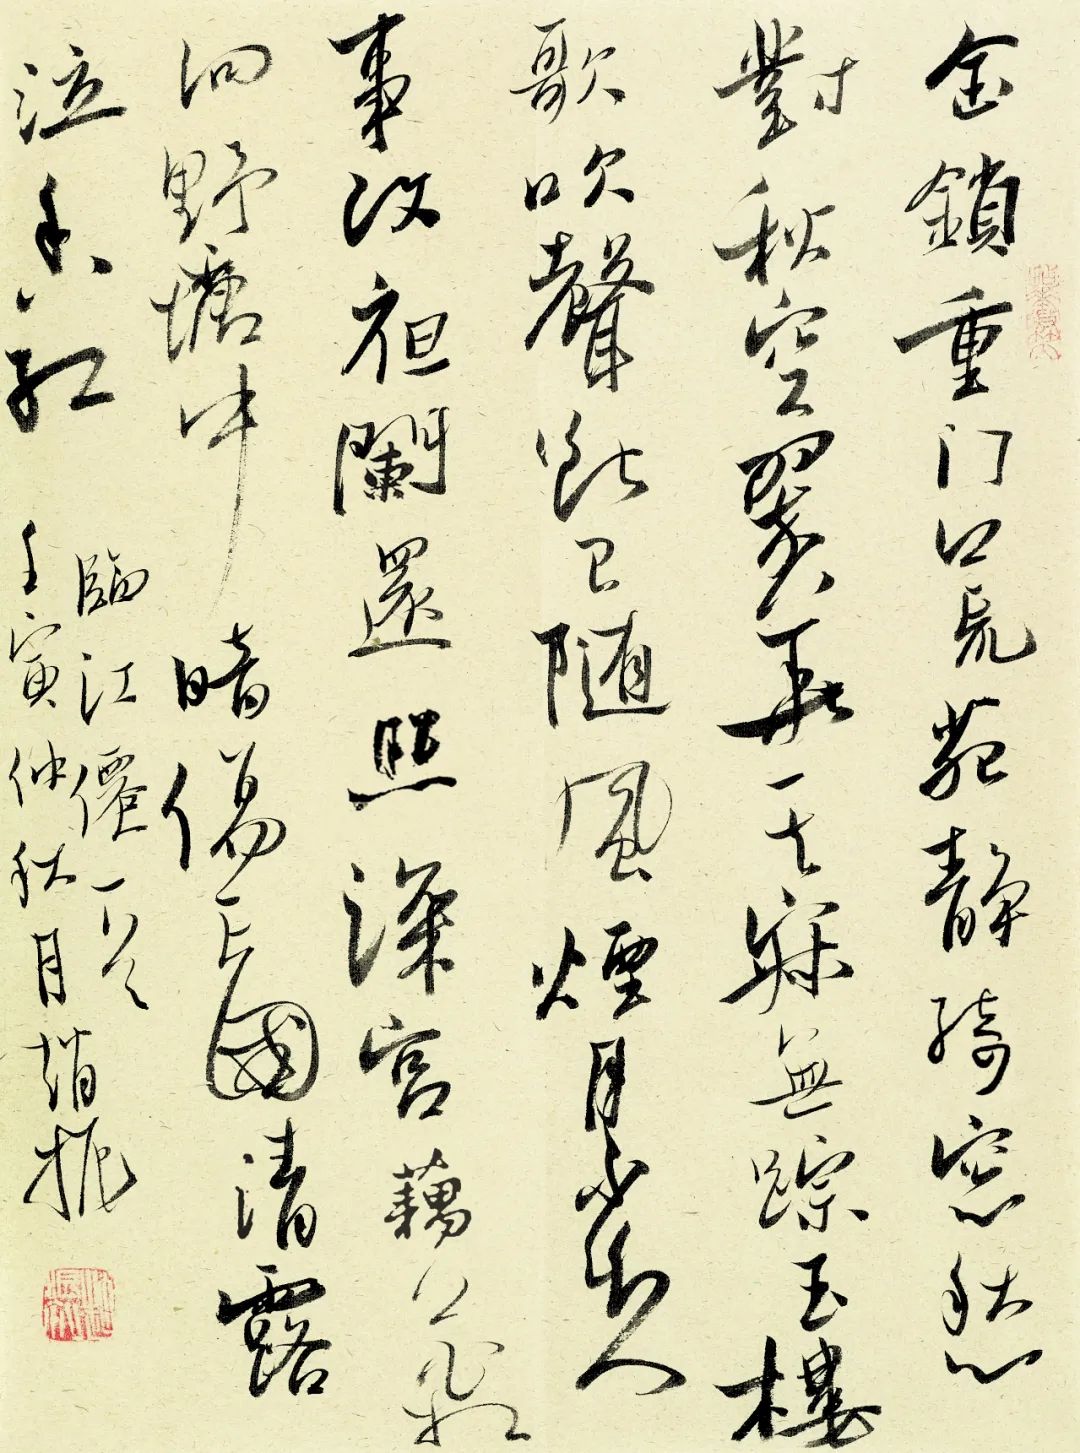 金鎖重门荒苑靜綺窓愁
對秋空翠華一去寂無踪玉樓
歌吹聲断已隨風煙月不知人
事改夜闌還照深宮藕花相
向野塘中暗傷亡國清露
泣香紅
臨江僊一首
壬寅仲秋月趙振